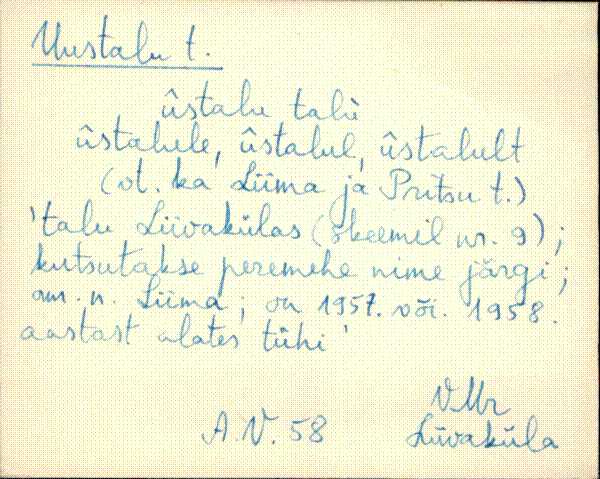 Uustalu t.
ûstalu talù
ûstalule, ûstalul, ûstalult
(vt. ka Liima ja Pritsu t.)
'talu Liivakülas (skeemil nr. 9);
kutsutakse peremehe nime järgi;
am. n. Liima; on 1957. või 1958.
aastast alates tühi'
V.Mr
A.V. 58 Liivaküla